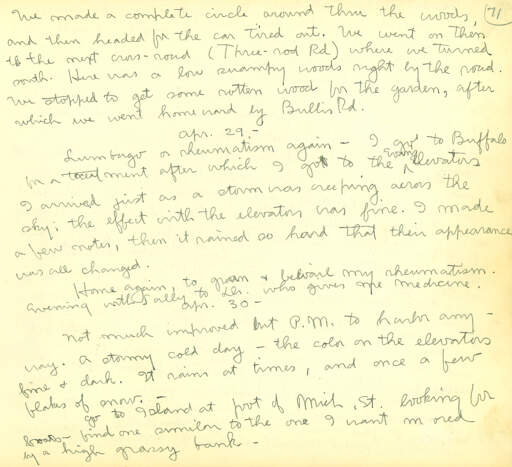 We made a complete circle around thru the woods, 71
and then headed for the car tired out. We went on then
to the next cross-road (Three-rod Rd) where we turned
south. Here was a low swampy woods right by the road.
We stopped to get some rotten wood for the garden, after
which we went homeward by Bullis Rd.
Apr. 29.-
Lumbago or rheumatism again - I go to Buffalo
for a treatment after which I got to the Evans Elevators
I arrived just as a storm was creeping across the
sky; the effect with the elevators was fine. I made
a few notes, then it rained so hard that their appearance
was all changed.
Home again, to groan & bewail my rheumatism.
Evening with Sally to Dr. who gives me medicine.
Apr. 30 -
Not much improved but P.M. to harbor any-
way. A stormy cold day - the color on the elevators
fine & dark. It rains at times, and once a few
flakes of snow. -
go to Island at foot of Mich. St. looking for
boats - find one similar to the one I want moored
by a high grassy bank -